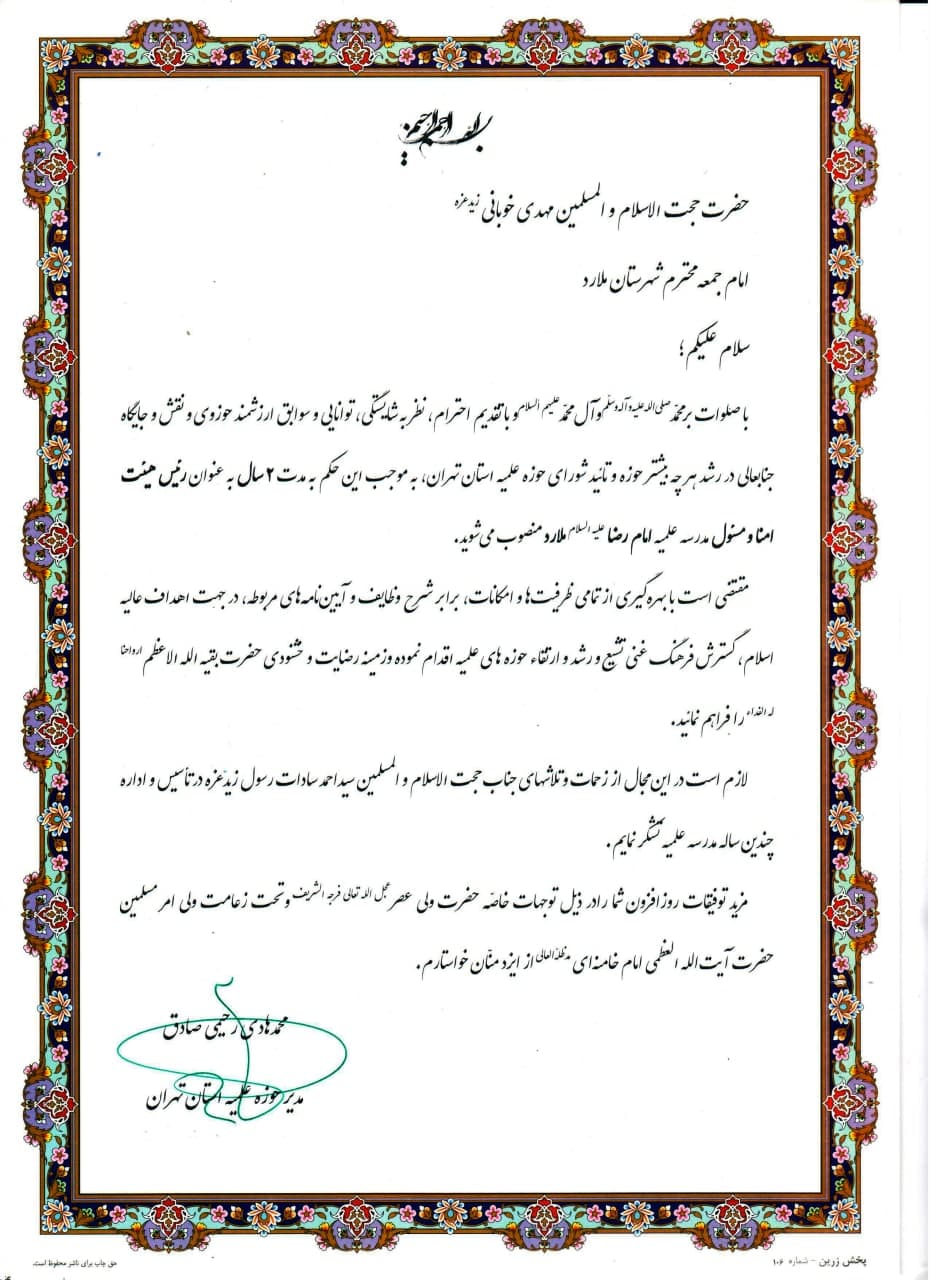 بسم الله الرحمن الرحیم
حضرت حجت الاسلام و المسلمین مهدی خوبانی زید عزه
امام جمعه محترم شهرستان ملارد
سلام علیکم؛
با صلوات بر محمّد صلی الله علیه و آله و سلّم و آل محمّد علیهم السلام و با تقدیم احترام، نظر به شایستگی، توانایی و سوابق ارزشمند حوزوی و نقش و جایگاه
جنابعالی در رشد هر چه بیشتر حوزه و تائید شورای حوزه علمیه استان تهران، به موجب این حکم به مدت ۲ سال به عنوان رئیس هیئت
امنا و مسئول مدرسه علمیه امام رضا علیه السلام ملارد منصوب می‌شوید.
مقتضی است با بهره گیری از تمامی ظرفیت‌ها و امکانات، برابر شرح وظایف و آیین‌نامه‌های مربوطه، در جهت اهداف عالیه
اسلام، گسترش فرهنگ غنی تشیع و رشد و ارتقاء حوزه های علمیه اقدام نموده و زمینه رضایت و خشنودی حضرت بقیه الله الاعظم ارواحنا
له الفداء را فراهم نمائید.
لازم است در این مجال از زحمات و تلاشهای جناب حجت الاسلام و المسلمین سید احمد سادات رسول زید عزه در تأسیس و اداره
چندین ساله مدرسه علمیه تشکر نمایم.
مزید توفیقات روز افزون شما را در ذیل توجهات خاصّه حضرت ولی عصر عجل الله تعالی فرجه الشریف و تحت زعامت ولی امر مسلمین
حضرت آیت الله العظمی امام خامنه‌ای مدظله العالی از ایزد منّان خواستارم.
محمدهادی رحیمی صادق
مدیر حوزه علمیه استان تهران
پخش زرین - شماره ۱۰۶
حق چاپ برای ناشر محفوظ است.